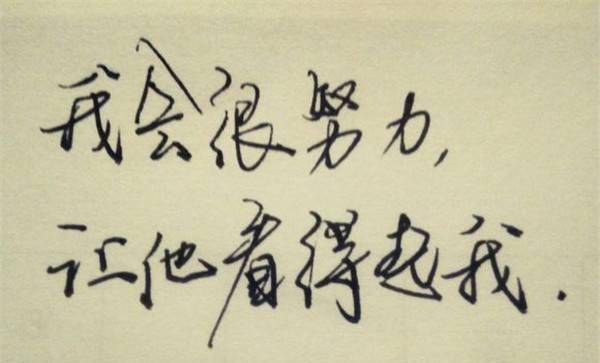 我会很努力,
让他看得起我.